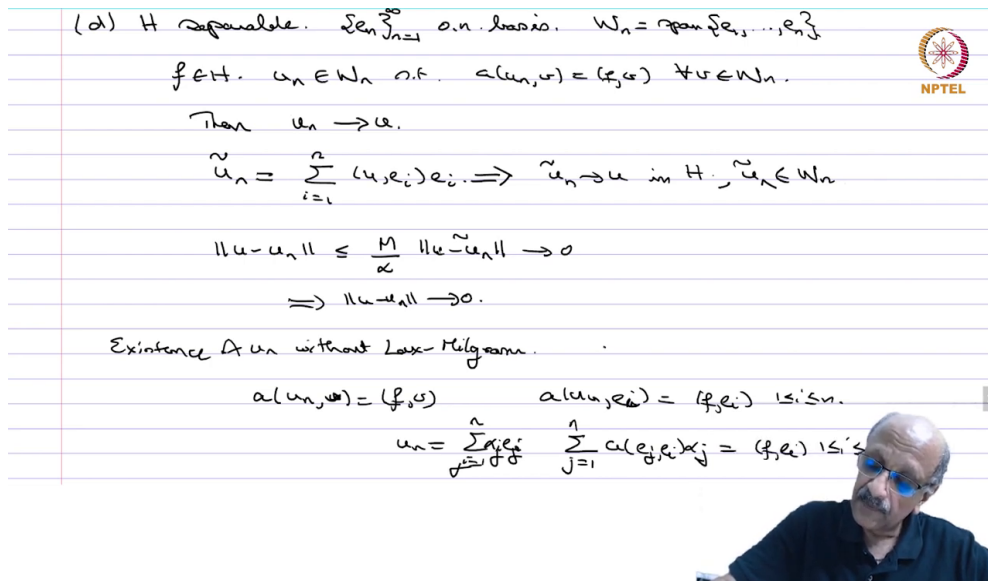 (d) H separable. {eₙ}ₙ₌₁^∞ o.n. basis. Wₙ = span{e₁, ..., eₙ}
f ∈ H. uₙ ∈ Wₙ s.t. a(uₙ, v) = (f, v) ∀ v ∈ Wₙ.
NPTEL
Then uₙ → u.
ũₙ = Σᵢ₌₁ⁿ (u, eᵢ) eᵢ. ⟹ ũₙ → u in H., ũₙ ∈ Wₙ
‖u - uₙ‖ ≤ M/α ‖u - ũₙ‖ → 0
⟹ ‖u - uₙ‖ → 0.
Existence of uₙ without Lax-Milgram.
a(uₙ, v) = (f, v) a(uₙ, eᵢ) = (f, eᵢ) 1 ≤ i ≤ n.
uₙ = Σⱼ₌₁ⁿ αⱼeⱼ Σⱼ₌₁ⁿ a(eⱼ, eᵢ) αⱼ = (f, eᵢ) 1 ≤ i ≤